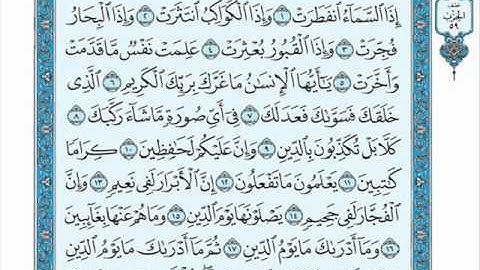 إِذَا السَّمَاءُ انفَطَرَتْ ١ وَإِذَا الْكَوَاكِبُ انتَثَرَتْ ٢ وَإِذَا الْبِحَارُ
فُجِّرَتْ ٣ وَإِذَا الْقُبُورُ بُعْثِرَتْ ٤ عَلِمَتْ نَفْسٌ مَّا قَدَّمَتْ
وَأَخَّرَتْ ٥ يَٰٓأَيُّهَا الْإِنسَٰنُ مَا غَرَّكَ بِرَبِّكَ الْكَرِيمِ ٦ الَّذِي
خَلَقَكَ فَسَوَّىٰكَ فَعَدَلَكَ ٧ فِىٓ أَىِّ صُورَةٍ مَّا شَآءَ رَكَّبَكَ ٨
كَلَّا بَلْ تُكَذِّبُونَ بِالدِّينِ ٩ وَإِنَّ عَلَيْكُمْ لَحَٰفِظِينَ ١٠ كِرَامًا
كَٰتِبِينَ ١١ يَعْلَمُونَ مَا تَفْعَلُونَ ١٢ إِنَّ الْأَبْرَارَ لَفِى نَعِيمٍ ١٣ وَإِنَّ
الْفُجَّارَ لَفِى جَحِيمٍ ١٤ يَصْلَوْنَهَا يَوْمَ الدِّينِ ١٥ وَمَا هُمْ عَنْهَا بِغَآئِبِينَ
١٦ وَمَآ أَدْرَىٰكَ مَا يَوْمُ الدِّينِ ١٧ ثُمَّ مَآ أَدْرَىٰكَ مَا يَوْمُ الدِّينِ
الحزب
٥٩